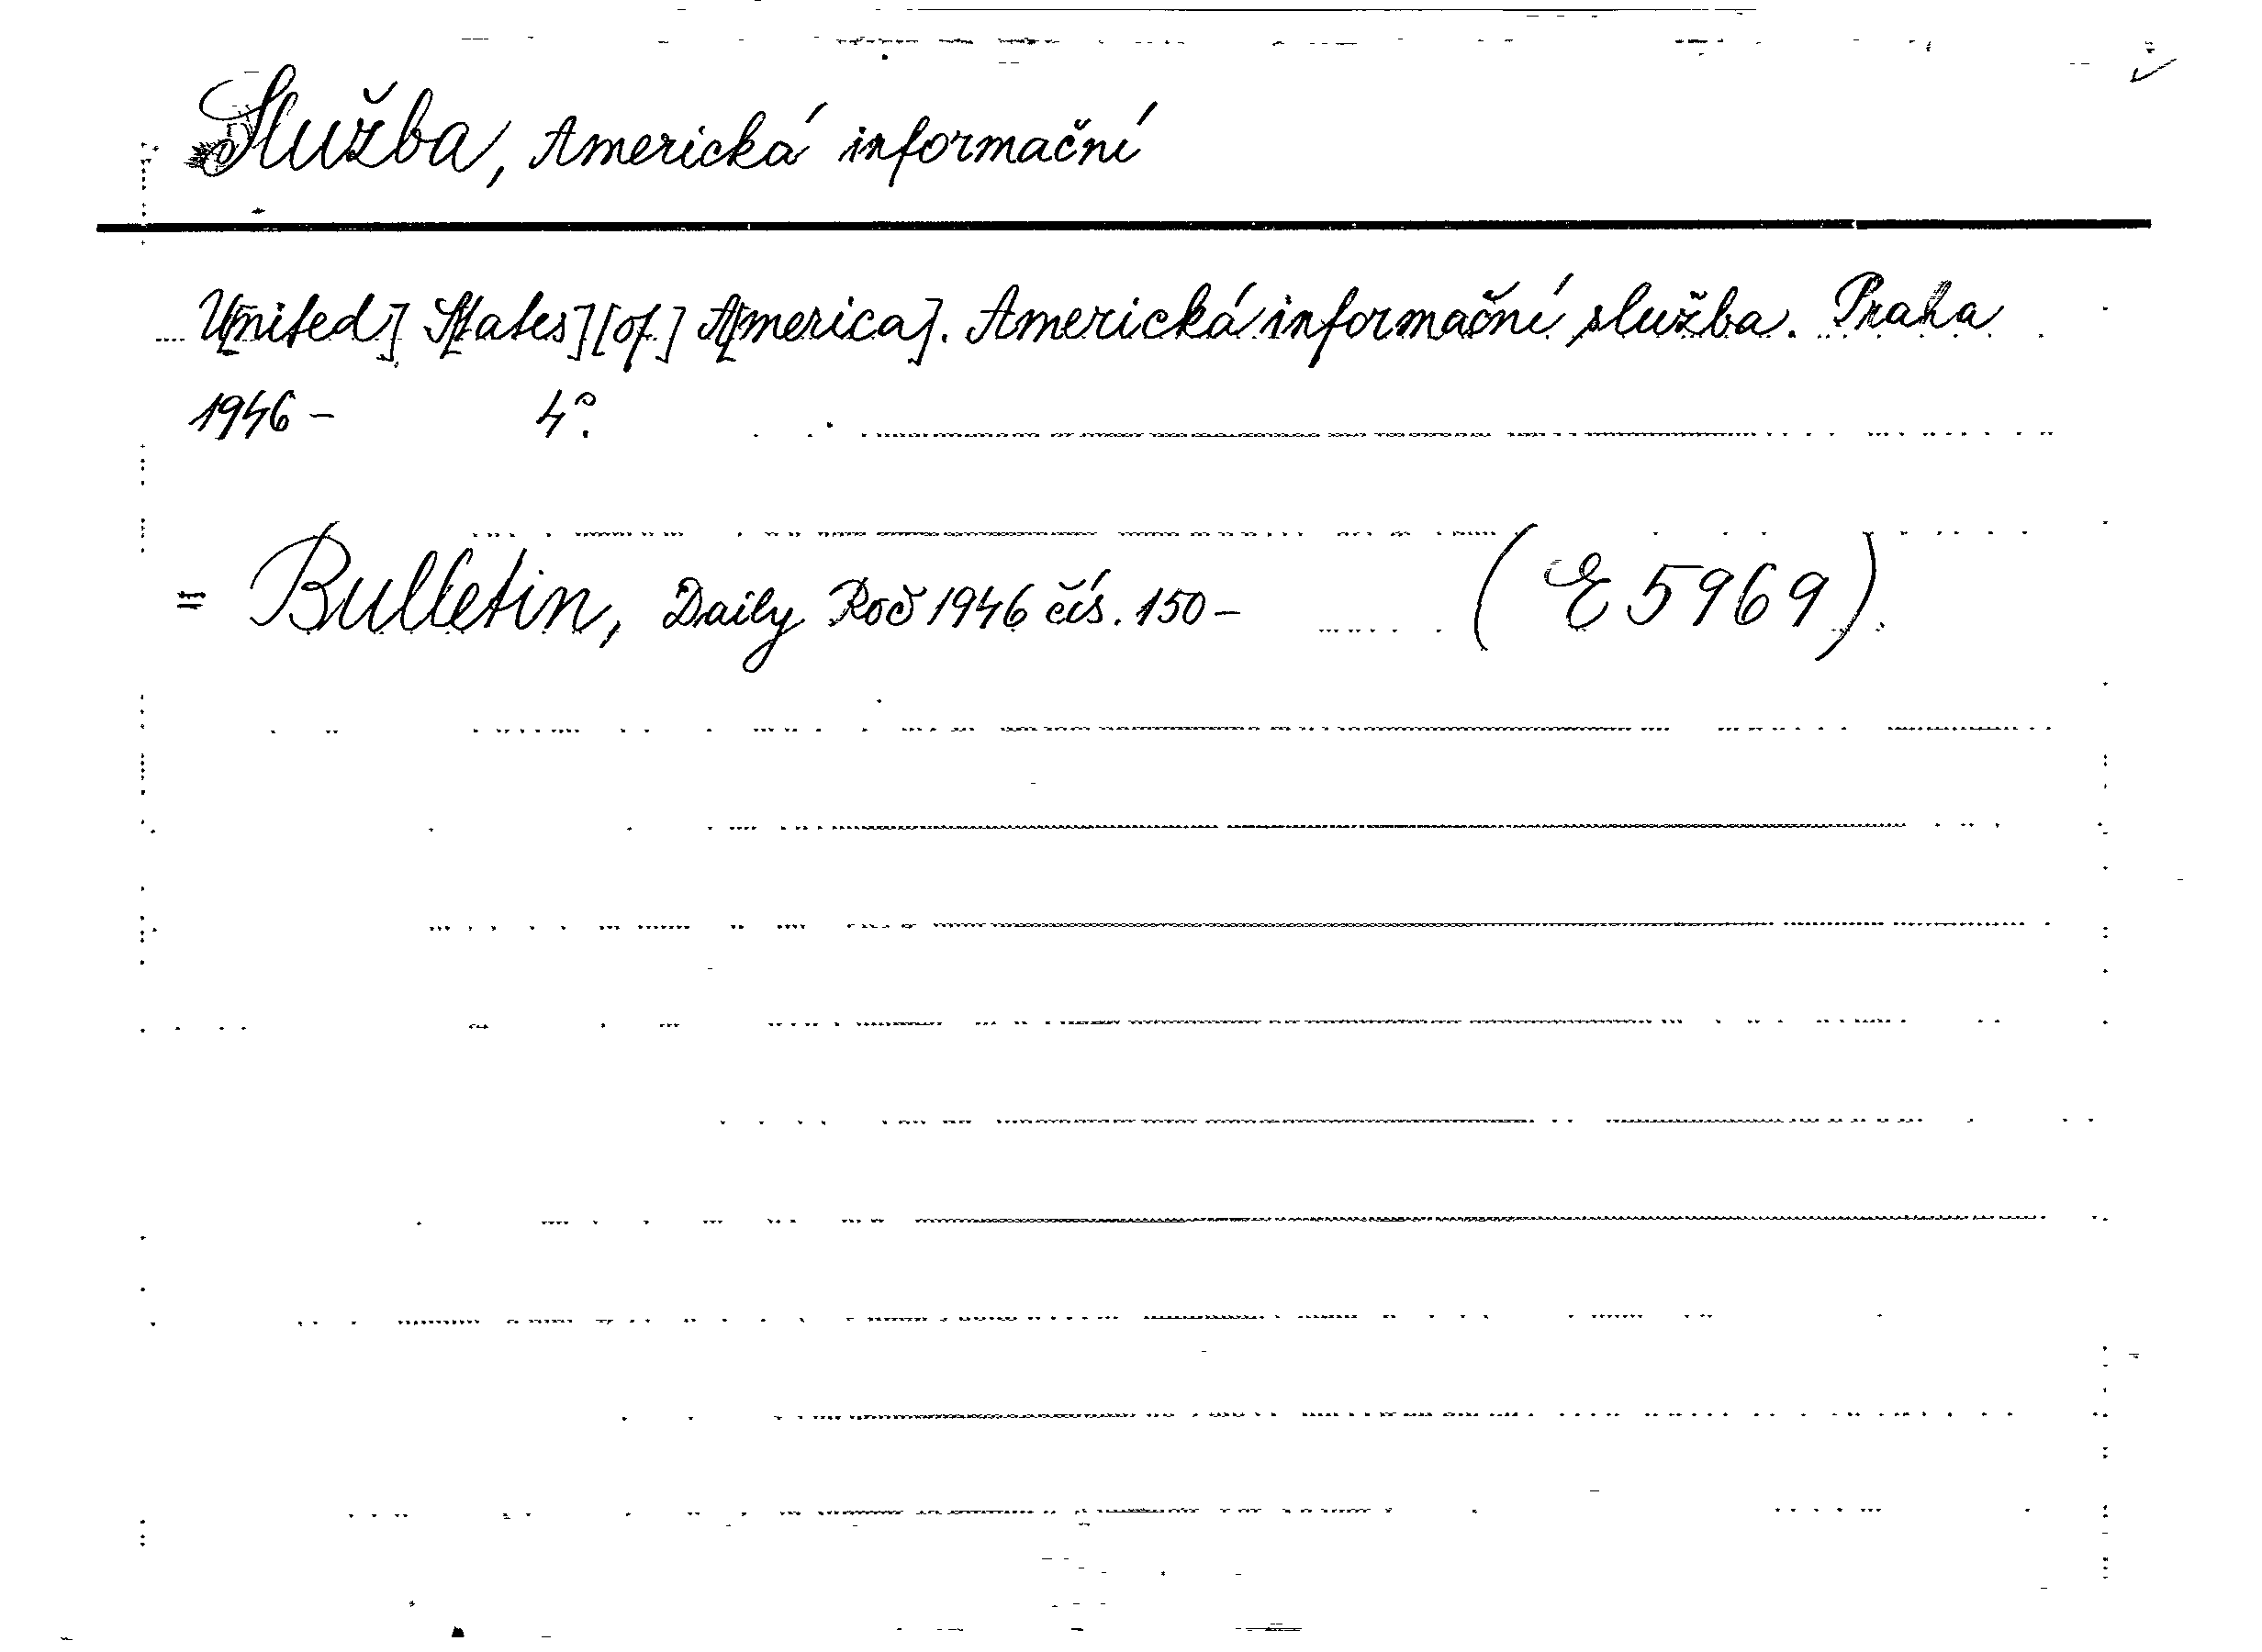 Služba, Americká informační
U[nited] S[tates] [of] A[merica]. Americká informační služba. Praha
1946 - 4°.
= Bulletin, Daily Roč 1946 čís. 150 - (E 5969).